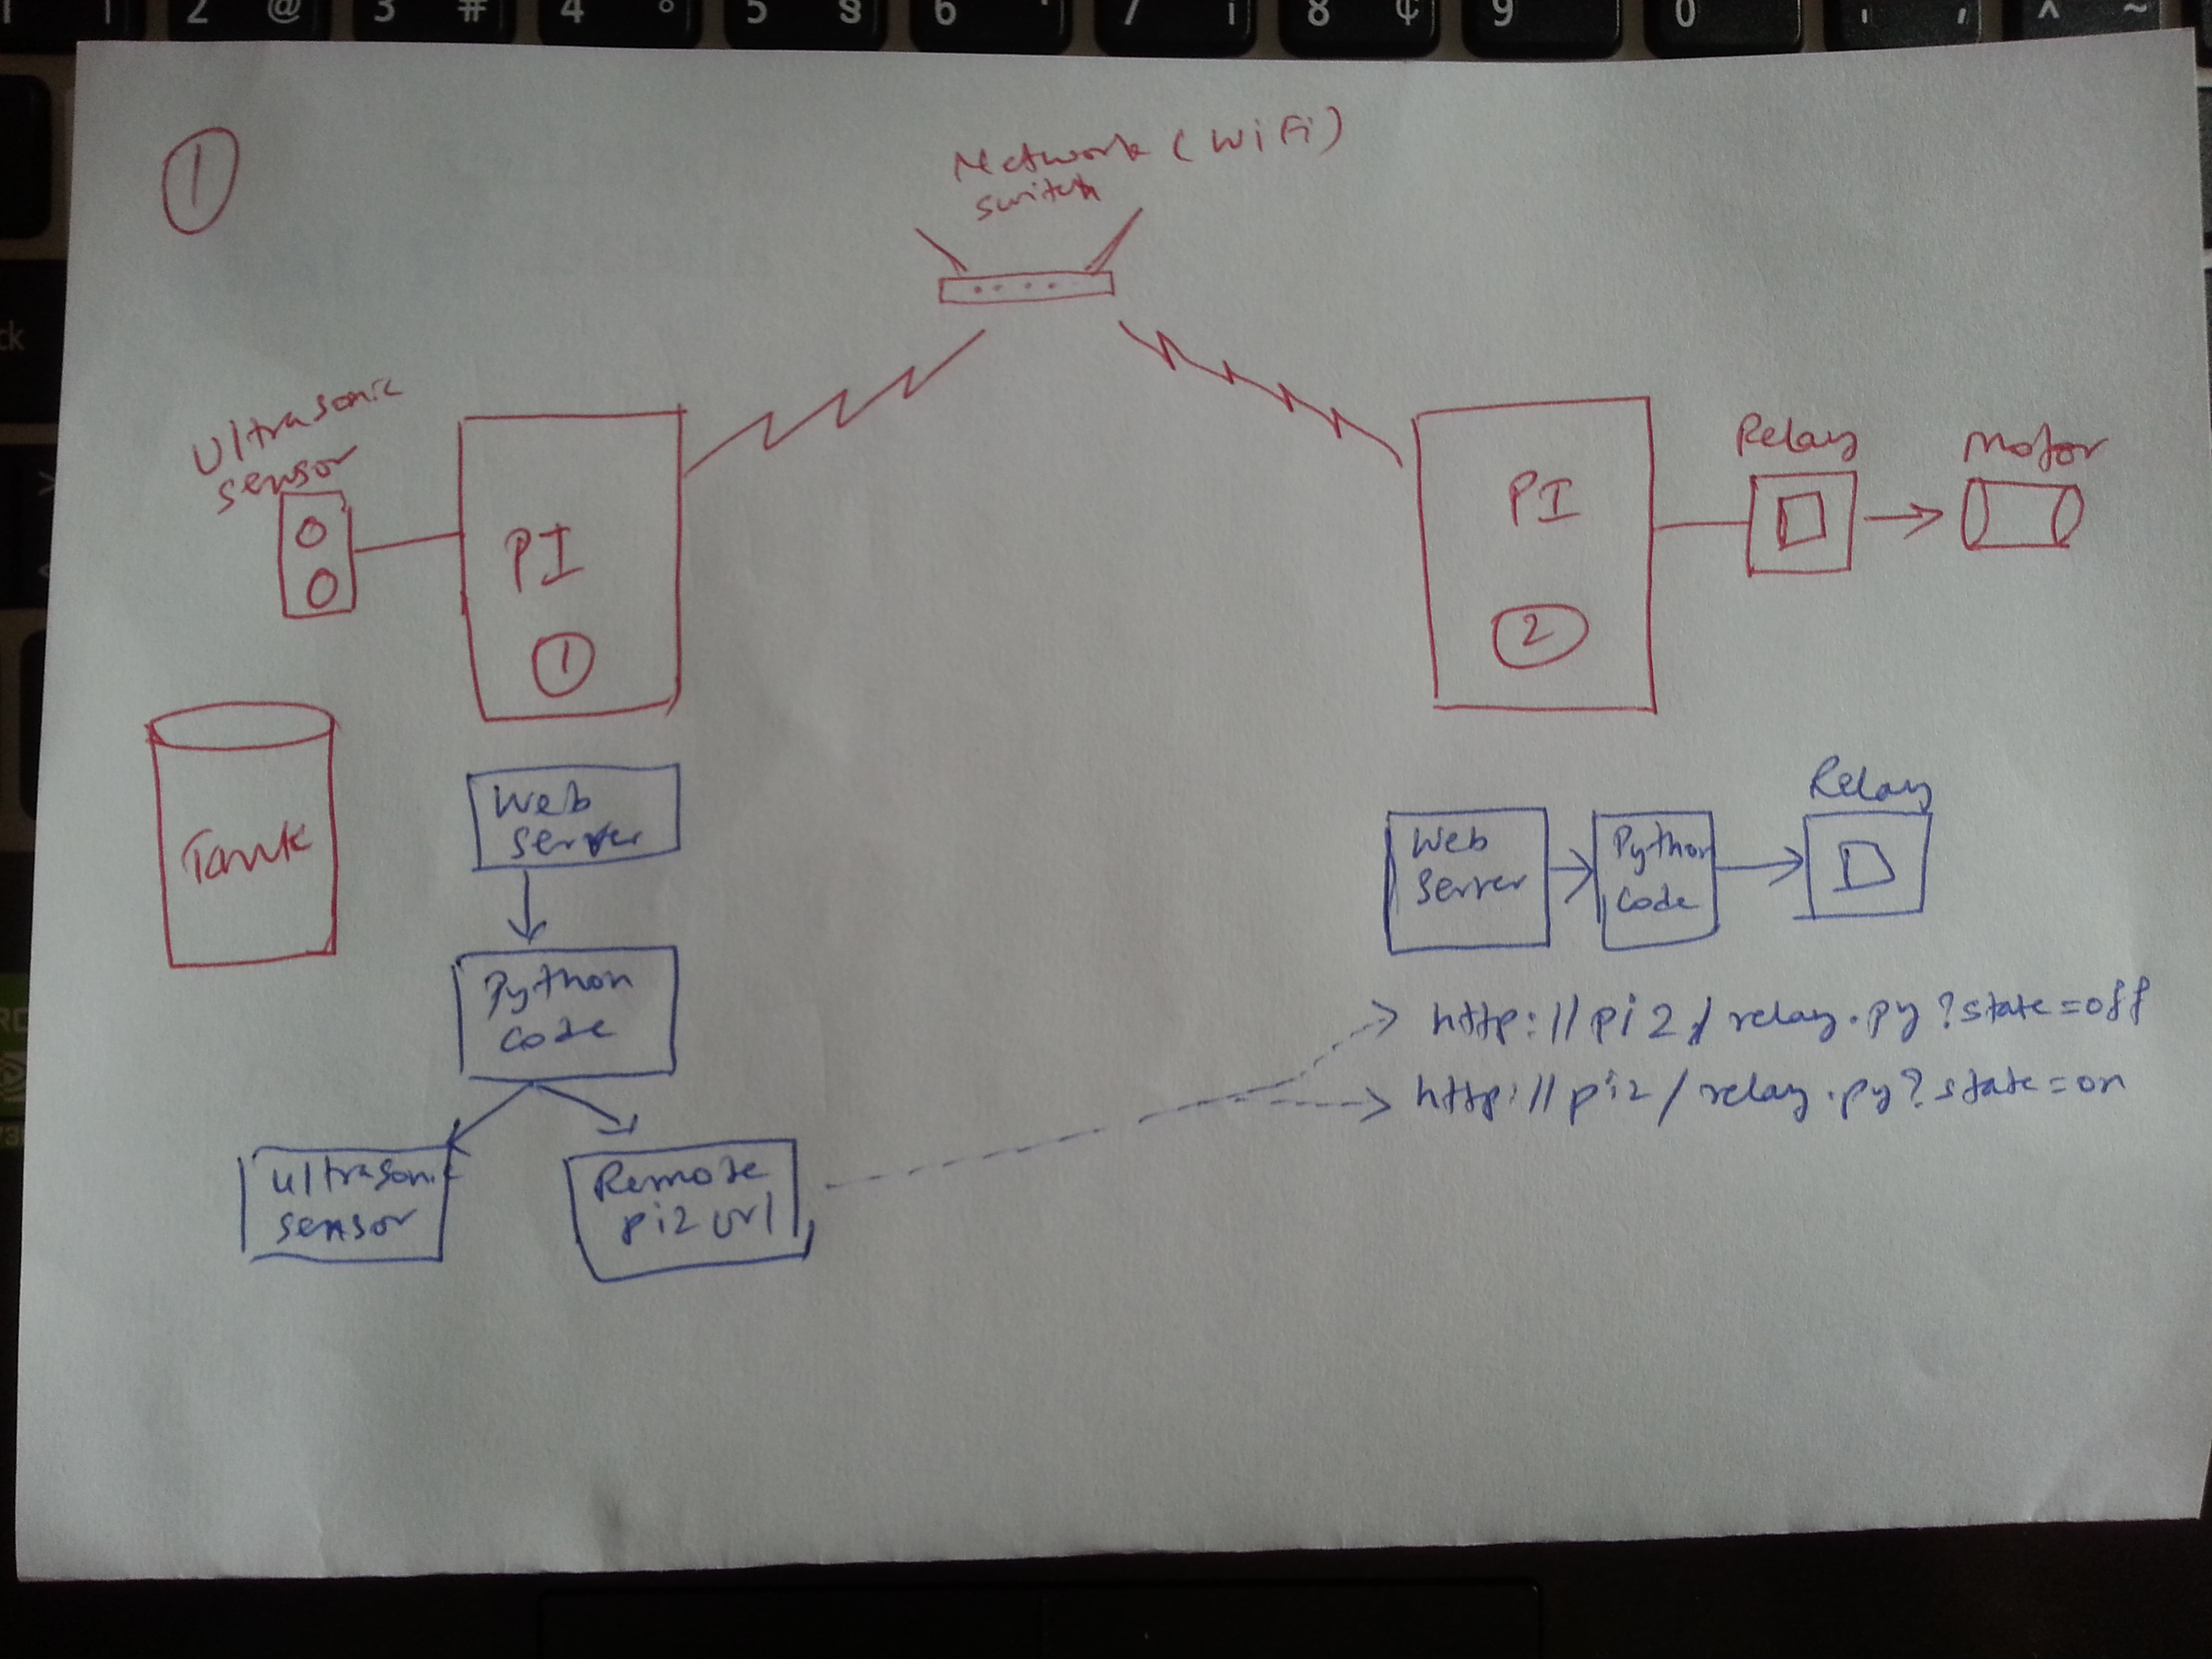 2 @ 3 # 4 ° 5 § 6 7 8 ¢ 9 0 ^ ~
ck
①
Network (WiFi)
switch
Ultrasonic
sensor
PI
①
PI
②
Relay
Motor
Tank
Web
server
Python
code
Ultrasonic
sensor
Remote
pi2 url
Web
Server
Python
code
Relay
http://pi2/relay.py?state=off
http://pi2/relay.py?state=on